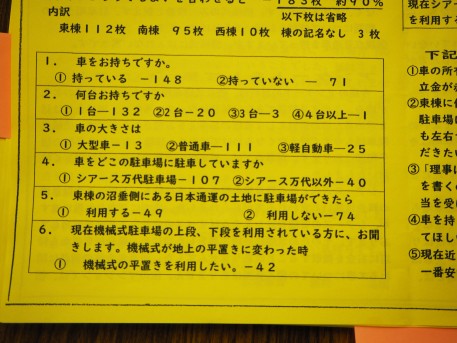 内訳
183枚 約90%
以下枚は省略
東棟112枚 南棟 95枚 西棟10枚 棟の記名なし 3枚
1. 車をお持ちですか。
① 持っている －148 ②持っていない ― 71
2. 何台お持ちですか
① 1台―132 ②2台－20 ③3台―3 ④4台以上―1
3. 車の大きさは
① 大型車－13 ②普通車―111 ③軽自動車―25
4. 車をどこの駐車場に駐車していますか
① シアース万代駐車場－107 ②シアース万代以外－40
5. 東棟の沼垂側にある日本通運の土地に駐車場ができたら
① 利用する－49 ② 利用しない－74
6. 現在機械式駐車場の上段、下段を利用されている方に、お聞
きします。機械式が地上の平置きに変わった時
① 機械式の平置きを利用したい。－42
現在シアー
を利用する
下記
①車の所
立金が
②東棟に
駐車場に
も左右
だきたい
③「理事
を書く
当を受
④車を持
てほし
⑤現在近
一番安